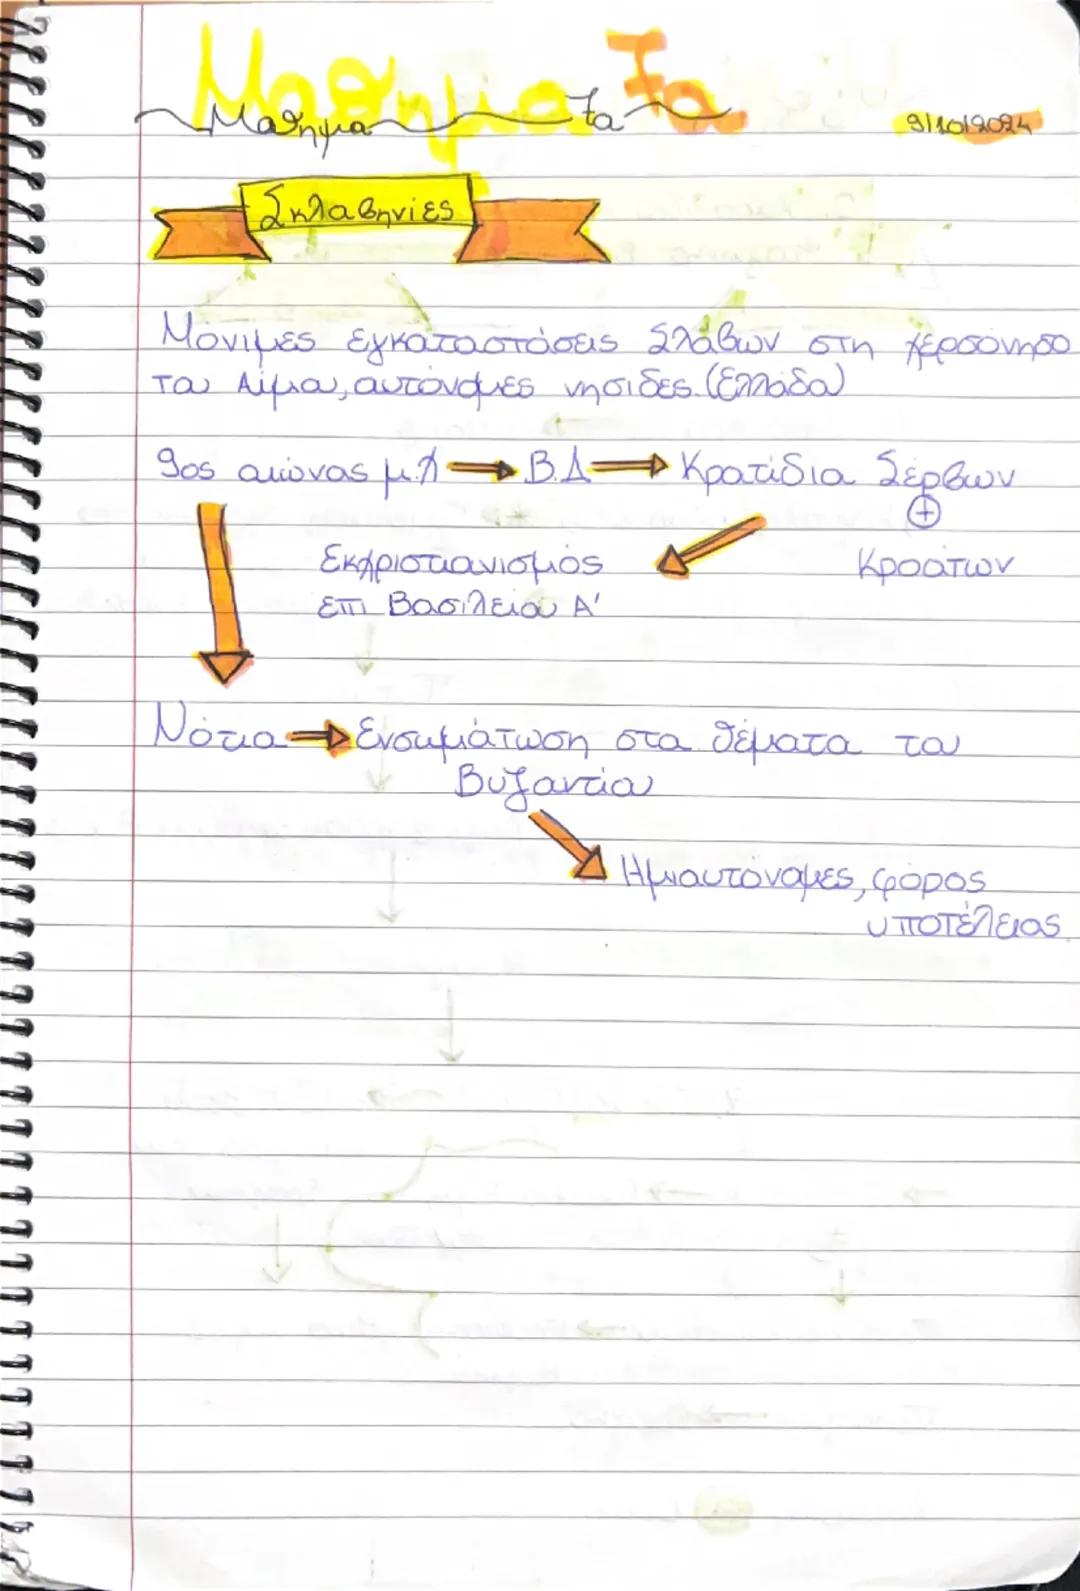 Μαθημα 7α
9/10/2024
Σκλαβηνιες
Μόνιμες εγκαταστάσεις Σλάβων στη χερσόνησο
του Αίμου, αυτόνομες νησίδες. (Ελλάδα)
9ος αιώνας μ.Χ → Β.Δ → Κρατίδια Σέρβων
+
Εκχριστιανισμός Κροατών
επι Βασιλείου Α'
Νότια → Ενσωμάτωση στα θέματα του
Βυζαντίου
Ημιαυτόνομες, φόρος
υποτέλειας